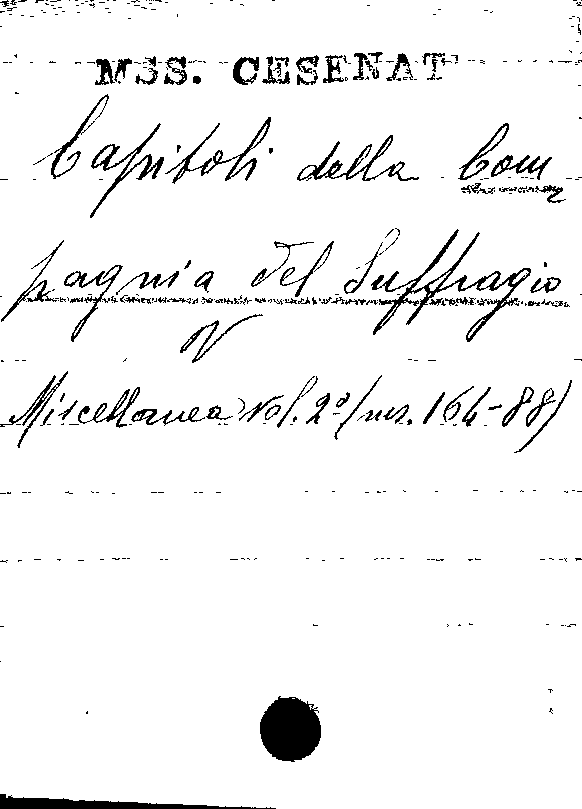 MSS. CESENAT
Capitoli della Com
pagnia del Suffragio
V
Miscellanea Vol. 2º (ms. 164-88)